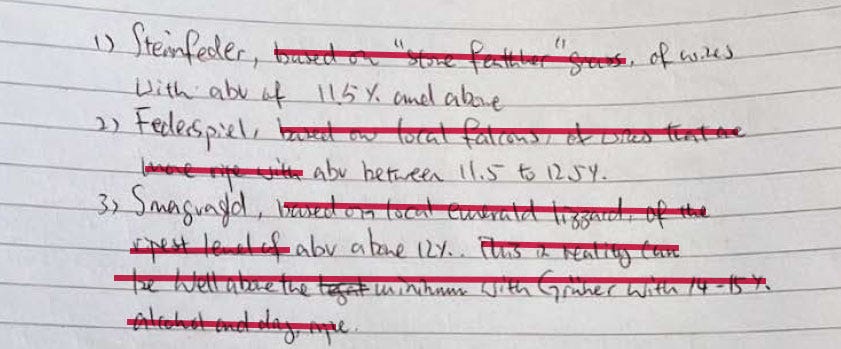 1) Steinfeder, based on "stone feather" grass, of wines
With abv of 11.5% and above
2) Federspiel, based on local falcons, of wines that are
more ripe with abv between 11.5 to 12.5%.
3) Smaragd, based on local emerald lizzard, of the
ripest level of abv above 12%.. This in reality can
be well above the minimum with Grüner with 14-15%
alcohol and ripe.